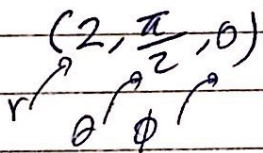 (2, π/2, 0)
r θ ϕ